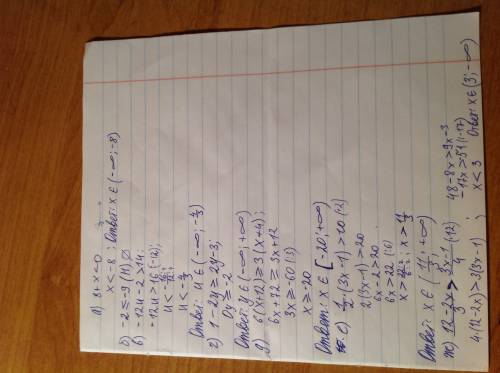 а) 8+x<0
x<-8; Ответ: x ∈ (-∞; -8)
б) -2≤-9 (Л) ∅
в) -12u-2>14
-12u>16 (-12);
u<-16/12;
u<-4/3
Ответ: u ∈ (-∞; -4/3)
г) 1-2y≥2y-3;
0y≥-2
Ответ: y ∈ (-∞; +∞)
д) 6(x+12≥3(x+4);
6x+72≥3x+12
3x≥-60 (3)
x≥-20
Ответ: x ∈ [-20; +∞)
е) 1/2·(3x-1)>10 (·2)
2(3x-1)>20
6x-2>20
6x>22 (:6)
x>22/6; x>11/3
Ответ: x ∈ (11/3; +∞)
ж) 12-2x/3 > 3x-1/4 (·12)
4·(12-2x)>3(3x-1);
48-8x>9x-3
-17x>51 (:-17)
x<3
Ответ: x ∈ (3; -∞)